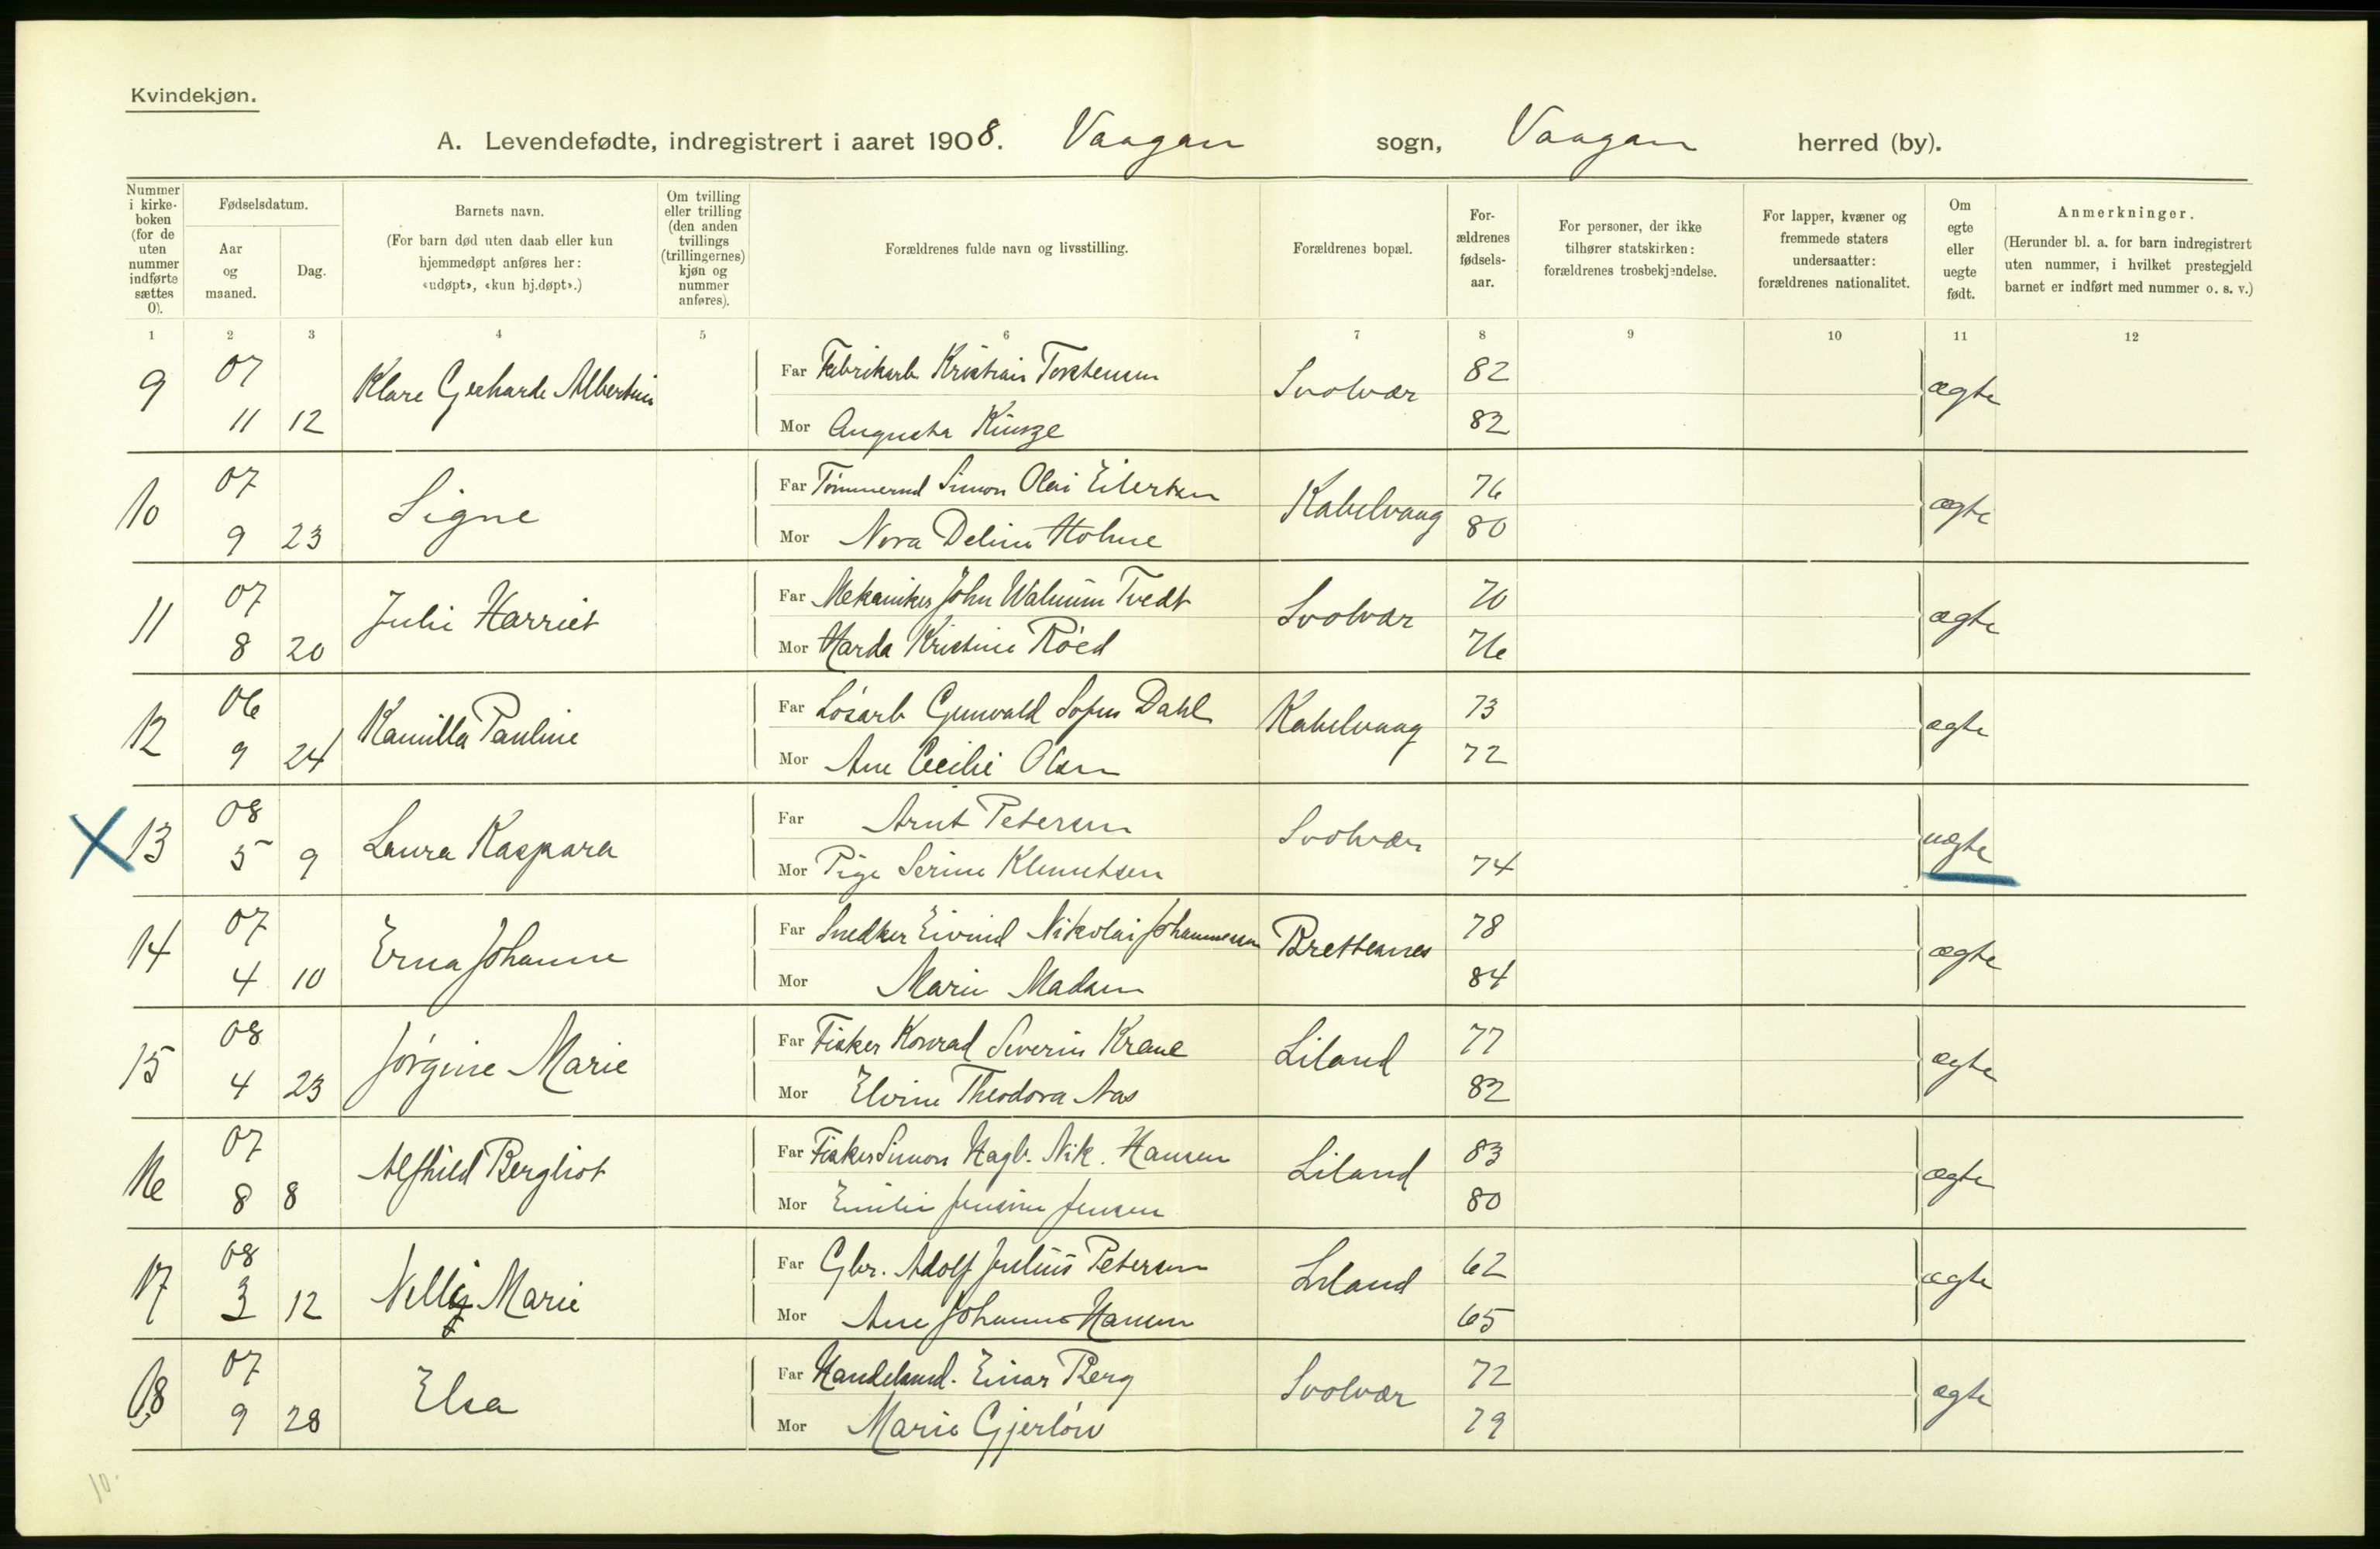 Kvindekjøn.
A. Levendefødte, indregistrert i aaret 1908. Vaagan sogn, Vaagan herred (by).
Nummer i kirkeboken (for de uten nummer indførte sættes 0).
Fødselsdatum.
Aar og maaned.
Dag.
Barnets navn.
(For barn død uten daab eller kun hjemmedøpt anføres her: «udøpt», «kun hj.døpt».)
Om tvilling eller trilling (den anden tvillings (trillingernes) kjøn og nummer anføres).
Forældrenes fulde navn og livsstilling.
Forældrenes bopæl.
Forældrenes fødselsaar.
For personer, der ikke tilhører statskirken: forældrenes trosbekjendelse.
For lapper, kvæner og fremmede staters undersaatter: forældrenes nationalitet.
Om egte eller uegte født.
Anmerkninger.
(Herunder bl. a. for barn indregistrert uten nummer, i hvilket prestegjeld barnet er indført med nummer o. s. v.)
1 2 3 4 5 6 7 8 9 10 11 12
9 07 Klara Gerharde Albertine Far Fabrikarb. Kristian Torstensen Svolvær 82 ægte
11 12 Mor Augusta 82
10 07 Signe Far Tømmermd Simon Olai Eilertsen Kabelvaag 76 ægte
9 23 Mor Nora Deline Holme 80
11 07 Julie Harriet Far Mekaniker John Walnum Tvedt Svolvær 70 ægte
8 20 Mor Harda Kristine Röed 76
12 06 Kamilla Pauline Far Lösarb Gunvald Sofus Dahl Kabelvaag 73 ægte
9 24 Mor Ane Cecilie Olsen 72
X 13 08 Laura Kaspara Far Arnt Petersen Svolvær uægte
5 9 Mor Pige Serine Klemetsen 74
14 07 Erna Johanne Far Snedker Eivind Nikolai Johannessen Brettesnes 78 ægte
4 10 Mor Marie Madsen 84
15 08 Jörgine Marie Far Fisker Konrad Severin Krane Liland 77 ægte
4 23 Mor Elvine Theodora Aas 82
16 07 Alfhild Bergliot Far Fisker Simon Hagb. Nik. Hansen Liland 83 ægte
8 8 Mor Emilie Jensine Jensen 80
17 08 Nelly Marie Far Gbr. Adolf Julius Petersen Liland 62 ægte
3 12 Mor Ane Johanne Hansen 65
18 07 Elsa Far Handelsmd. Einar Berg Svolvær 72 ægte
9 28 Mor Marie Gjerlöw 79
10.